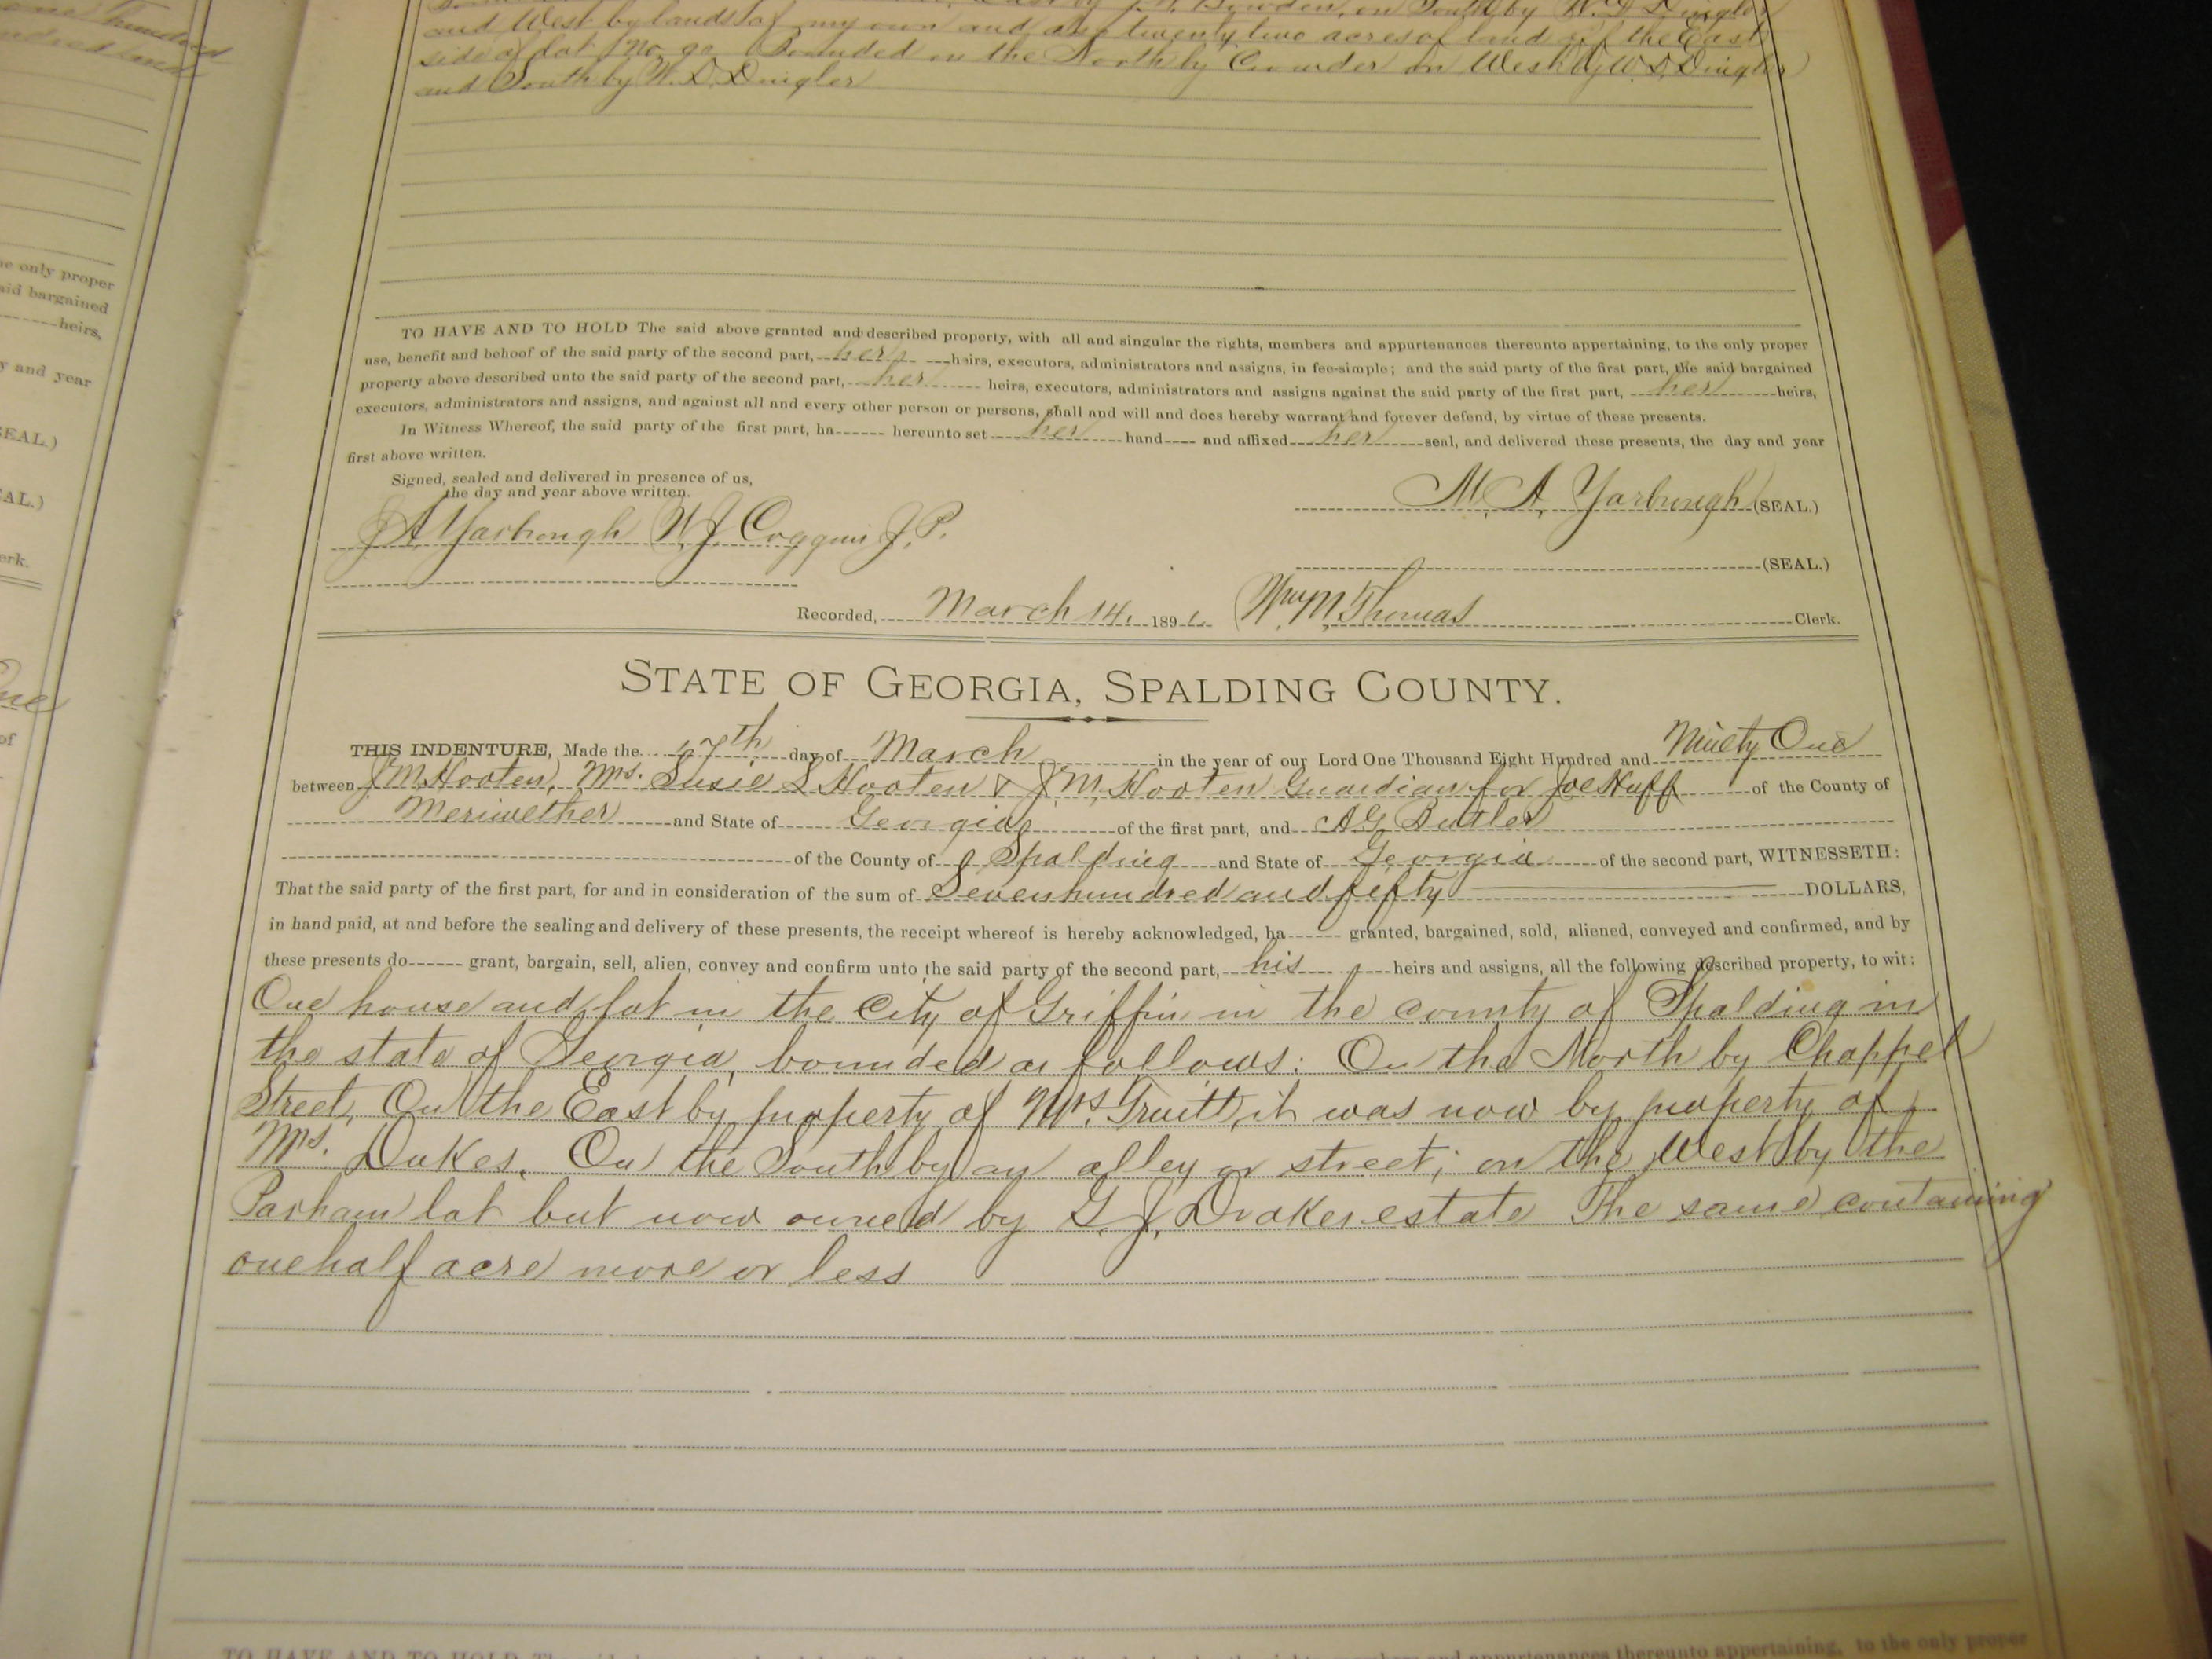 and West by lands of my own and also twenty two acres of land off the East
side of lot No. 90 Bounded on the North by Crowder on West by W. D. Dingler
and South by W. D. Dingler
he only proper
aid bargained
heirs,
y and year
SEAL.)
EAL.)
erk.
of
TO HAVE AND TO HOLD The said above granted and described property, with all and singular the rights, members and appurtenances thereunto appertaining, to the only proper
use, benefit and behoof of the said party of the second part, her heirs, executors, administrators and assigns, in fee-simple; and the said party of the first part, the said bargained
property above described unto the said party of the second part, her heirs, executors, administrators and assigns against the said party of the first part, her heirs,
executors, administrators and assigns, and against all and every other person or persons, shall and will and does hereby warrant and forever defend, by virtue of these presents.
In Witness Whereof, the said party of the first part, ha hereunto set her hand and affixed her seal, and delivered these presents, the day and year
first above written.
Signed, sealed and delivered in presence of us,
the day and year above written.
M. A. Yarbrough (SEAL.)
J A Yarbrough W. J. Coggin J. P.
(SEAL.)
Recorded, March 14, 1891. Wm M. Thomas Clerk.
STATE OF GEORGIA, SPALDING COUNTY.
THIS INDENTURE, Made the 17th day of March in the year of our Lord One Thousand Eight Hundred and Ninety One
between J M Hooten, Mrs. Susie S Hooten & J. M. Hooten Guardian for Joe Huff of the County of
Meriwether and State of Georgia of the first part, and A. G. Butler
of the County of Spalding and State of Georgia of the second part, WITNESSETH:
That the said party of the first part, for and in consideration of the sum of Seven hundred and fifty DOLLARS,
in hand paid, at and before the sealing and delivery of these presents, the receipt whereof is hereby acknowledged, ha granted, bargained, sold, aliened, conveyed and confirmed, and by
these presents do grant, bargain, sell, alien, convey and confirm unto the said party of the second part, his heirs and assigns, all the following described property, to wit:
One house and lot in the City of Griffin in the county of Spalding in
the state of Georgia, bounded as follows: On the North by Chappel
Street, On the East by property of Mrs. Truitt, it was now by property of
Mrs. Dukes. On the South by an alley or street; on the West by the
Parham lot but now owned by G. J. Drakes estate The same containing
one half acre more or less